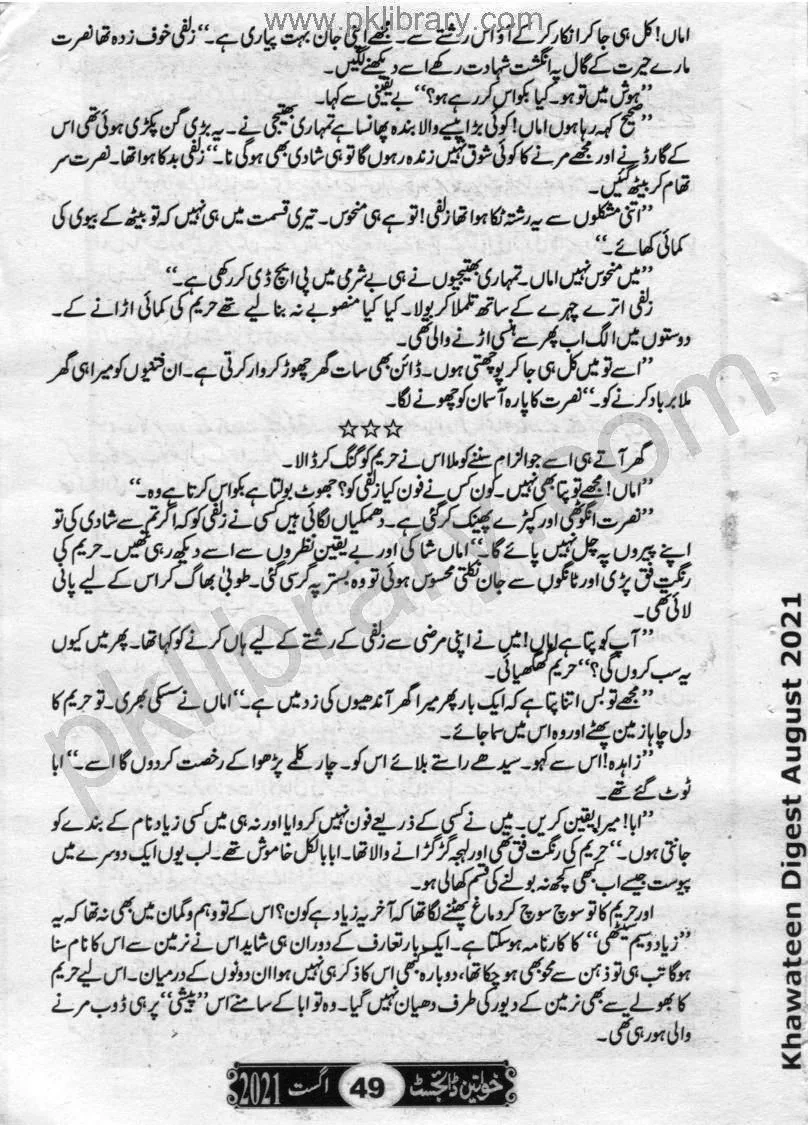 www.pklibrary.com
اماں! کل ہی جا کر انکار کر کے آؤ اس رشتے سے۔ مجھے اپنی جان بہت پیاری ہے۔“ زلفی خوف زدہ تھا نصرت
مارے حیرت کے گال پہ انگشت شہادت رکھے اسے دیکھنے لگیں۔
”ہوش میں تو ہو۔ کیا بکواس کر رہے ہو؟“ بے یقینی سے کہا۔
”صحیح کہہ رہا ہوں اماں! کوئی بڑا پیسے والا بندہ پھانسا ہے تمہاری بھتیجی نے۔ یہ بڑی گن پکڑی ہوئی تھی اس
کے گارڈ نے اور مجھے مرنے کا کوئی شوق نہیں زندہ رہوں گا تو ہی شادی بھی ہو گی نا۔“ زلفی بدکا ہوا تھا۔ نصرت سر
تھام کر بیٹھ گئیں۔
”اتنی مشکلوں سے یہ رشتہ ٹکا ہوا تھا زلفی! تو ہے ہی منحوس۔ تیری قسمت میں ہی نہیں کہ تو بیٹھ کے بیوی کی
کمائی کھائے۔“
”میں منحوس نہیں اماں۔ تمہاری بھتیجیوں نے ہی بے شرمی میں پی ایچ ڈی کر رکھی ہے۔“
زلفی اترے چہرے کے ساتھ تلملا کر بولا۔ کیا کیا منصوبے نہ بنا لیے تھے حریم کی کمائی اڑانے کے۔
دوستوں میں الگ اب پھر سے ہنسی اڑنے والی تھی۔
”اسے تو میں کل ہی جا کر پوچھتی ہوں۔ ڈائن بھی سات گھر چھوڑ کر وار کرتی ہے۔ ان فتنیوں کو میرا ہی گھر
ملا برباد کرنے کو۔“ نصرت کا پارہ آسمان کو چھونے لگا۔
☆☆☆
گھر آتے ہی اسے جو الزام سننے کو ملا اس نے حریم کو گنگ کر ڈالا۔
”اماں! مجھے تو پتا بھی نہیں۔ کون کس نے فون کیا زلفی کو؟ جھوٹ بولتا ہے بکواس کرتا ہے وہ۔“
”نصرت انگوٹھی اور کپڑے پھینک کر گئی ہے۔ دھمکیاں لگائی ہیں کسی نے زلفی کو کہ اگر تم سے شادی کی تو
اپنے پیروں پہ چل نہیں پائے گا۔“ اماں شاکی اور بے یقین نظروں سے اسے دیکھ رہی تھیں۔ حریم کی
رنگت فق پڑی اور ٹانگوں سے جان نکلتی محسوس ہوئی تو وہ بستر پہ گر سی گئی۔ طوبیٰ بھاگ کر اس کے لیے پانی
لائی تھی۔
”آپ کو پتا ہے اماں! میں نے اپنی مرضی سے زلفی کے رشتے کے لیے ہاں کرنے کو کہا تھا۔ پھر میں کیوں
یہ سب کروں گی؟“ حریم گھگھیائی۔
”مجھے تو بس اتنا پتا ہے کہ ایک بار پھر میرا گھر آندھیوں کی زد میں ہے۔“ اماں نے سسکی بھری۔ تو حریم کا
دل چاہا زمین پھٹے اور وہ اس میں سما جائے۔
”زاہدہ! اس سے کہو۔ سیدھے راستے بلائے اس کو۔ چار کلمے پڑھوا کے رخصت کر دوں گا اسے۔“ ابا
ٹوٹ گئے تھے۔
”ابا! میرا یقین کریں۔ میں نے کسی کے ذریعے فون نہیں کروایا اور نہ ہی میں کسی زیاد نام کے بندے کو
جانتی ہوں۔“ حریم کی رنگت فق تھی اور لہجہ گڑگڑانے والا تھا۔ ابا بالکل خاموش تھے۔ لب یوں ایک دوسرے میں
پیوست جیسے اب بھی کچھ نہ بولنے کی قسم کھالی ہو۔
اور حریم کا تو سوچ سوچ کر دماغ پھٹنے لگا تھا کہ آخر یہ زیاد ہے کون؟ اس کے تو وہم و گمان میں بھی نہ تھا کہ یہ
”زیاد وسیم سیٹھی“ کا کارنامہ ہو سکتا ہے۔ ایک بار تعارف کے دوران ہی شاید اس نے نرمین سے اس کا نام سنا
ہو گا تب ہی تو ذہن سے محو بھی ہو چکا تھا، دوبارہ کبھی اس کا ذکر ہی نہیں ہوا ان دونوں کے درمیان۔ اس لیے حریم
کا بھولے سے بھی نرمین کے دیور کی طرف دھیان نہیں گیا۔ وہ تو ابا کے سامنے اس ”پیشی“ پر ہی ڈوب مرنے
والی ہو رہی تھی۔
خواتین ڈائجسٹ 49 اگست 2021
Khawateen Digest August 2021
pklibrary.com